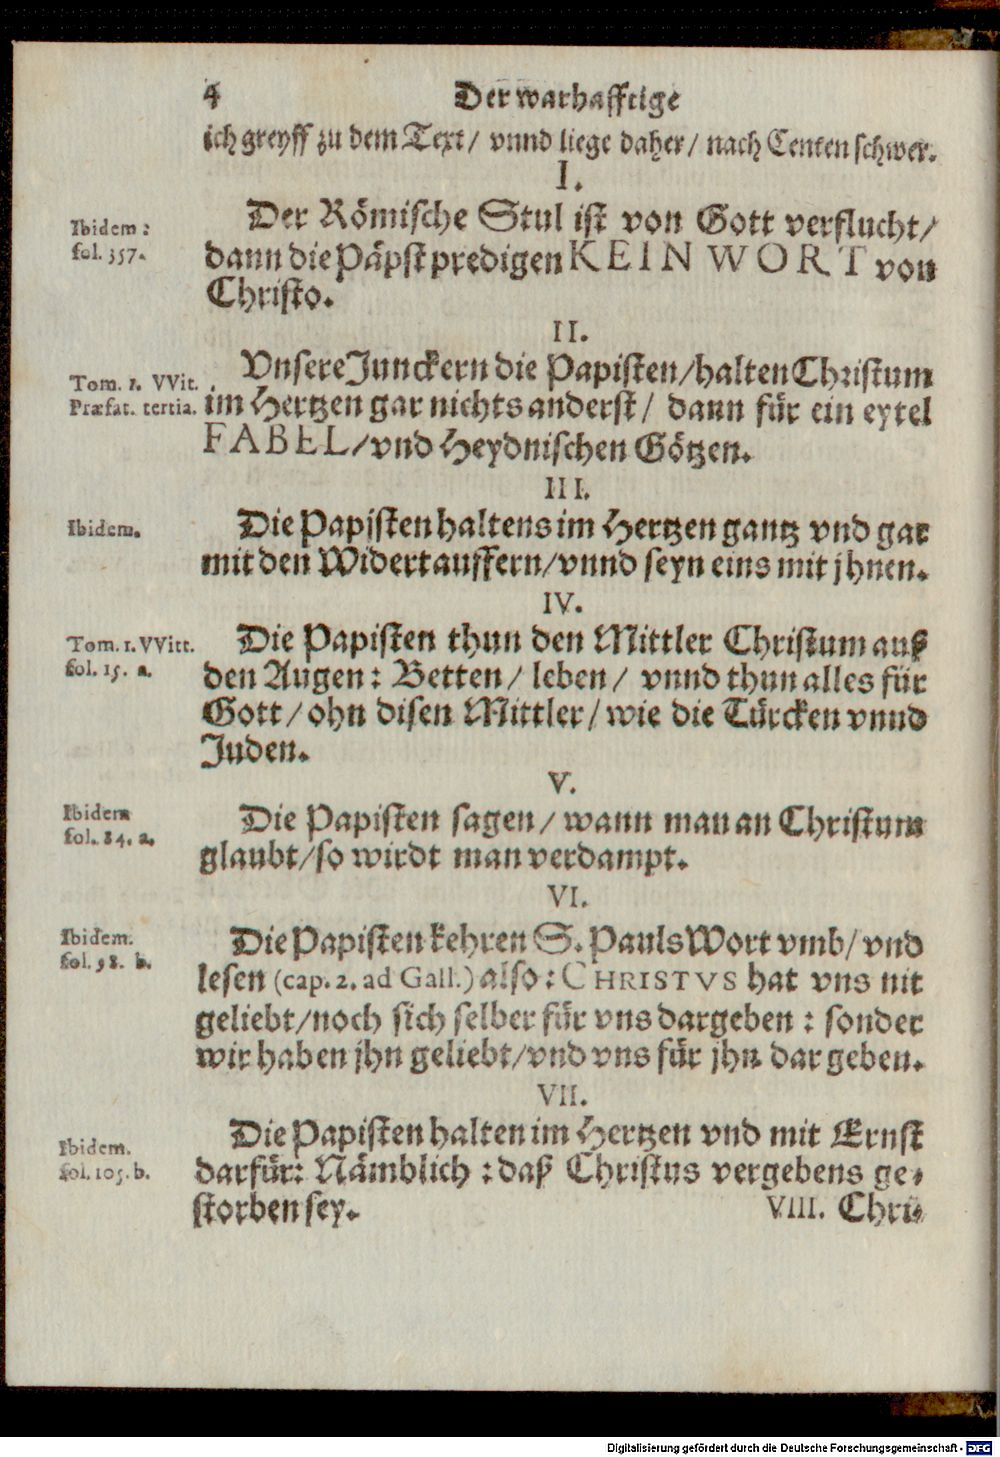 4 Der warhafftige
ich greyff zu dem Text/ vnnd liege daher/ nach Centen schwer.
I.
Ibidem:
fol. 357.
Der Römische Stul ist von Gott verflucht/
dann die Päpst predigen KEIN WORT von
Christo.
II.
Tom. 1. VVit.
Præfat. tertia.
Vnsere Junckern die Papisten/halten Christum
im Hertzen gar nichts anderst/ dann für ein eytel
FABEL/vnd Heydnischen Götzen.
III.
Ibidem.
Die Papisten haltens im Hertzen gantz vnd gar
mit den Widertauffern/vnnd seyn eins mit jhnen.
IV.
Tom. 1. VVitt.
fol. 15. a.
Die Papisten thun den Mittler Christum auß
den Augen: Betten/ leben/ vnnd thun alles für
Gott/ ohn disen Mittler/ wie die Türcken vnnd
Juden.
V.
Ibidem
fol. 84. a.
Die Papisten sagen/ wann man an Christum
glaubt/so wirdt man verdampt.
VI.
Ibidem.
fol. 98. b.
Die Papisten kehren S. Pauls Wort vmb/ vnd
lesen (cap. 2. ad Gall.) also: CHRISTVS hat vns nit
geliebt/noch sich selber für vns dargeben: sonder
wir haben jhn geliebt/vnd vns für jhn dar geben.
VII.
Ibidem.
fol. 105. b.
Die Papisten halten im Hertzen vnd mit Ernst
darfür: Nämblich: daß Christus vergebens ge-
storben sey.
VIII. Chri-
Digitalisierung gefördert durch die Deutsche Forschungsgemeinschaft - DFG